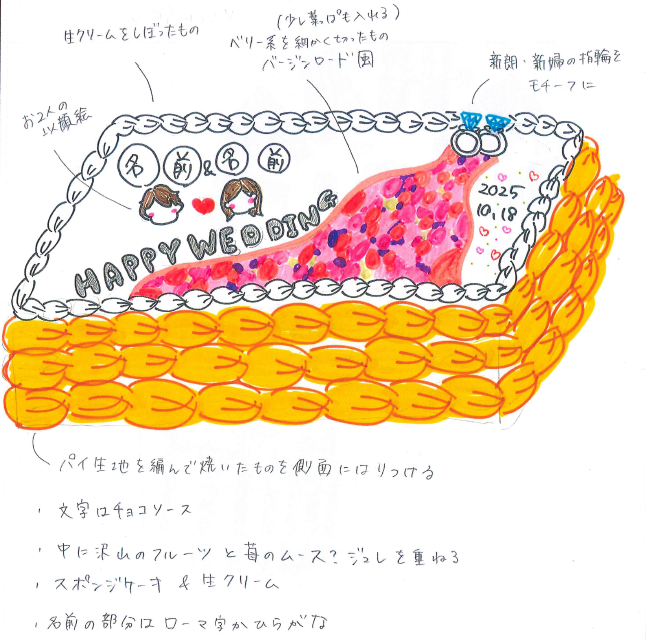 生クリームをしぼったもの
(少し葉っぱも入れる)
ベリー系を細かく切ったもの
バージンロード風
新朗・新婦の指輪を
モチーフに
お2人の
似顔絵
名 前 & 名 前
HAPPY WEDDING
2025
10.18
パイ生地を編んで焼いたものを側面にはりつける
・文字はチョコソース
・中に沢山のフルーツと苺のムース?ジュレを重ねる
・スポンジケーキ & 生クリーム
・名前の部分はローマ字かひらがな